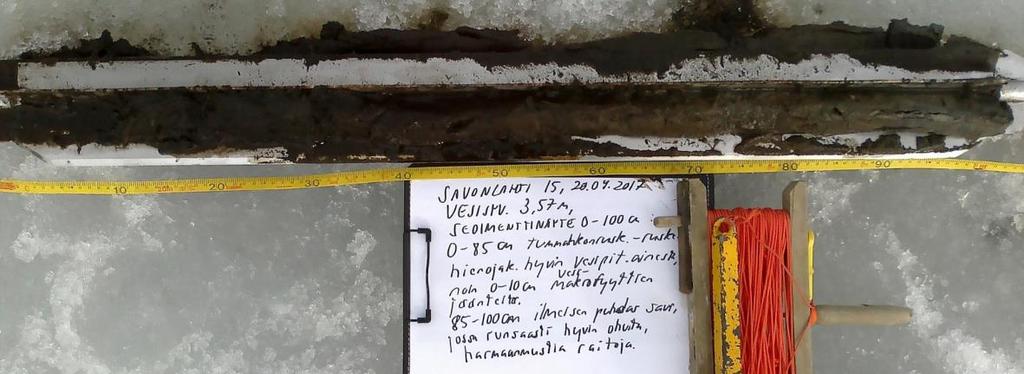 10 20 30 40 50 60 70 80 90
SAVONLAHTI 15, 20.04.2017
VESISYV. 3,57m,
SEDIMENTTINÄYTE 0-100 cm
0-85 cm tummahkonrusk.-rusk.
hienojak. hyvin vesipit. ainesta,
noin 0-10 cm vesi-makrofyyttien
jäänteitä.
85-100 cm ilmeisen puhdas savi,
jossa runsaasti hyvin ohuita,
harmaanmustia raitoja.